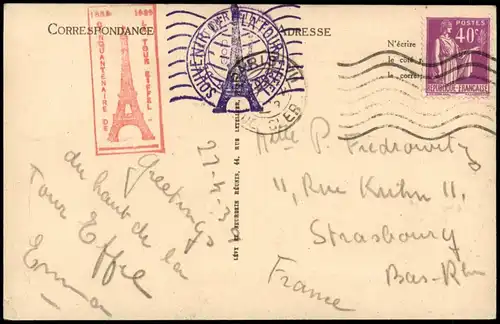 CORRESPONDANCE
ADRESSE
1889 1939
CINQUANTENAIRE DE
LA TOUR EIFFEL
SOUVENIR DE LA TOUR EIFFEL
PARIS
POSTES
40c
REPUBLIQUE FRANÇAISE
N'écrire
le côté
la corresp
22-4-3
Greetings
du haut de la
Tour Effel
Emma
LÉVY ET NEURDEIN RÉUNIS, 44, RUE LETELLIER,
P. Fredrowitz
11, Rue Kuhn 11
Strasbourg
Bas-Rhin
France